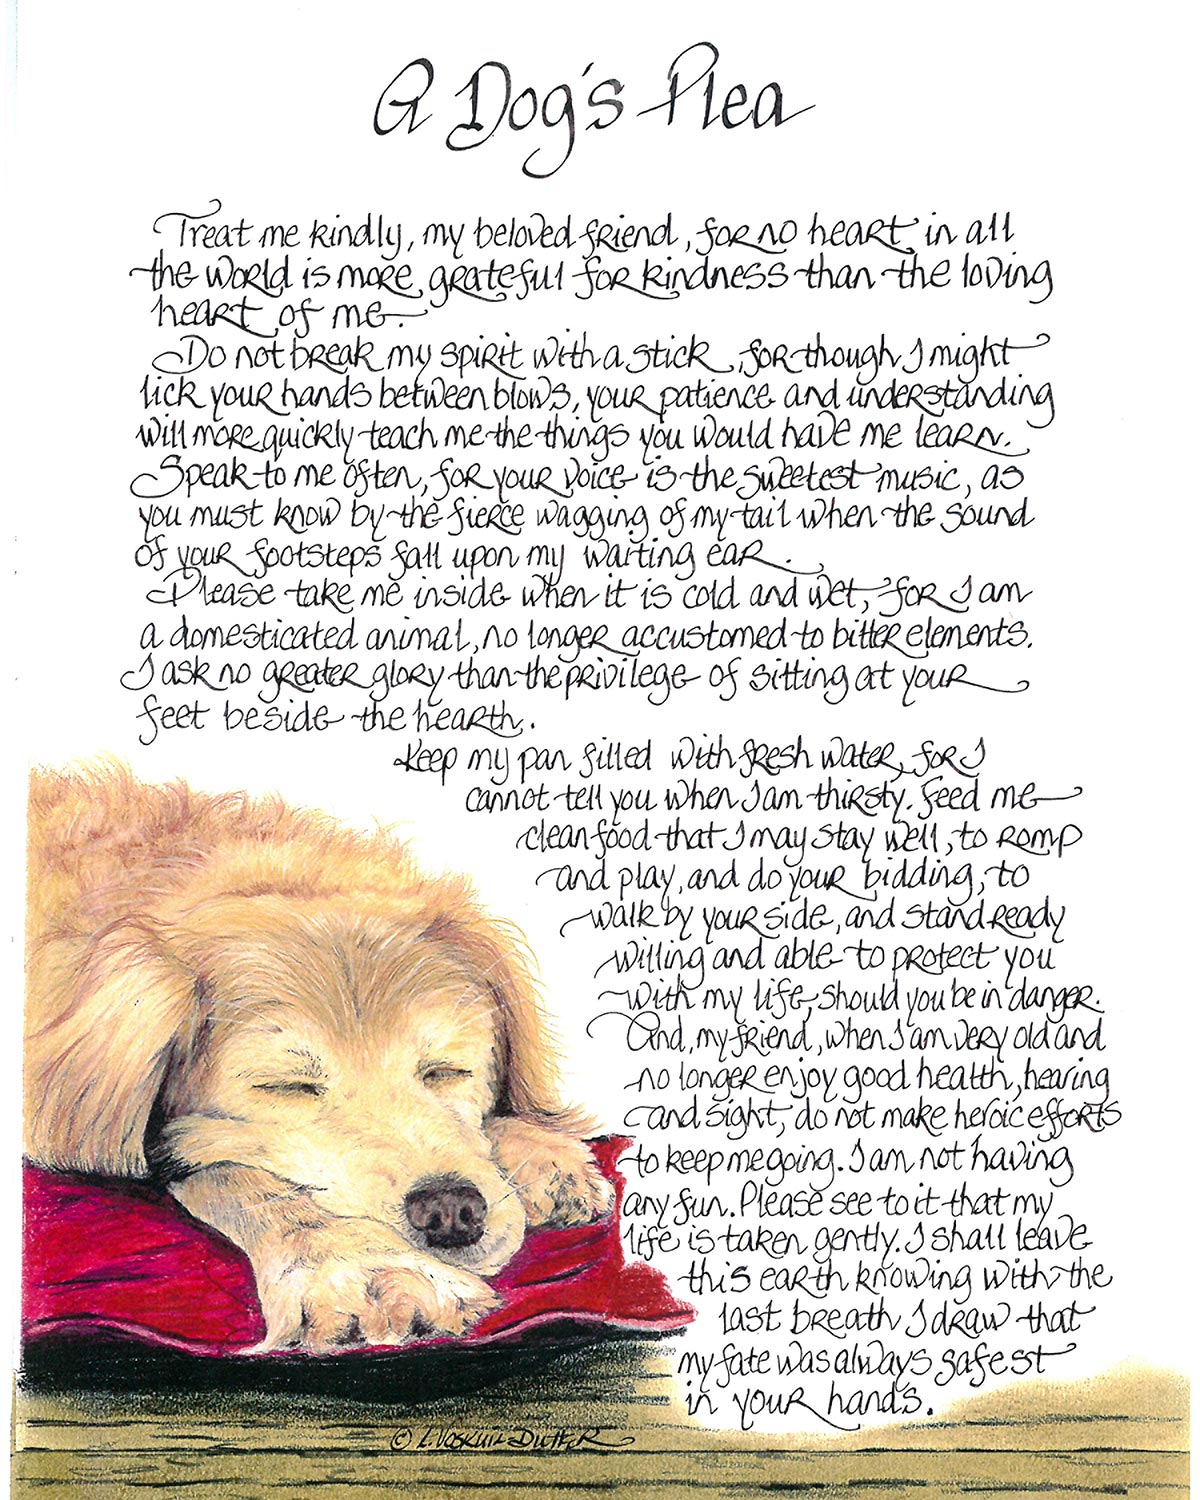 A Dog's Plea
Treat me kindly, my beloved friend, for no heart in all
the world is more grateful for kindness than the loving
heart of me.
Do not break my spirit with a stick, for though I might
lick your hands between blows, your patience and understanding
will more quickly teach me the things you would have me learn.
Speak to me often, for your voice is the sweetest music, as
you must know by the fierce wagging of my tail when the sound
of your footsteps fall upon my waiting ear.
Please take me inside when it is cold and wet, for I am
a domesticated animal, no longer accustomed to bitter elements.
I ask no greater glory than the privilege of sitting at your
feet beside the hearth.
Keep my pan filled with fresh water, for I
cannot tell you when I am thirsty. Feed me
clean food that I may stay well, to romp
and play, and do your bidding, to
walk by your side, and stand ready
willing and able to protect you
with my life, should you be in danger.
And, my friend, when I am very old and
no longer enjoy good health, hearing
and sight, do not make heroic efforts
to keep me going. I am not having
any fun. Please see to it that my
life is taken gently. I shall leave
this earth knowing with the
last breath I draw that
my fate was always safest
in your hands.
© L. Voskuil-Dutter